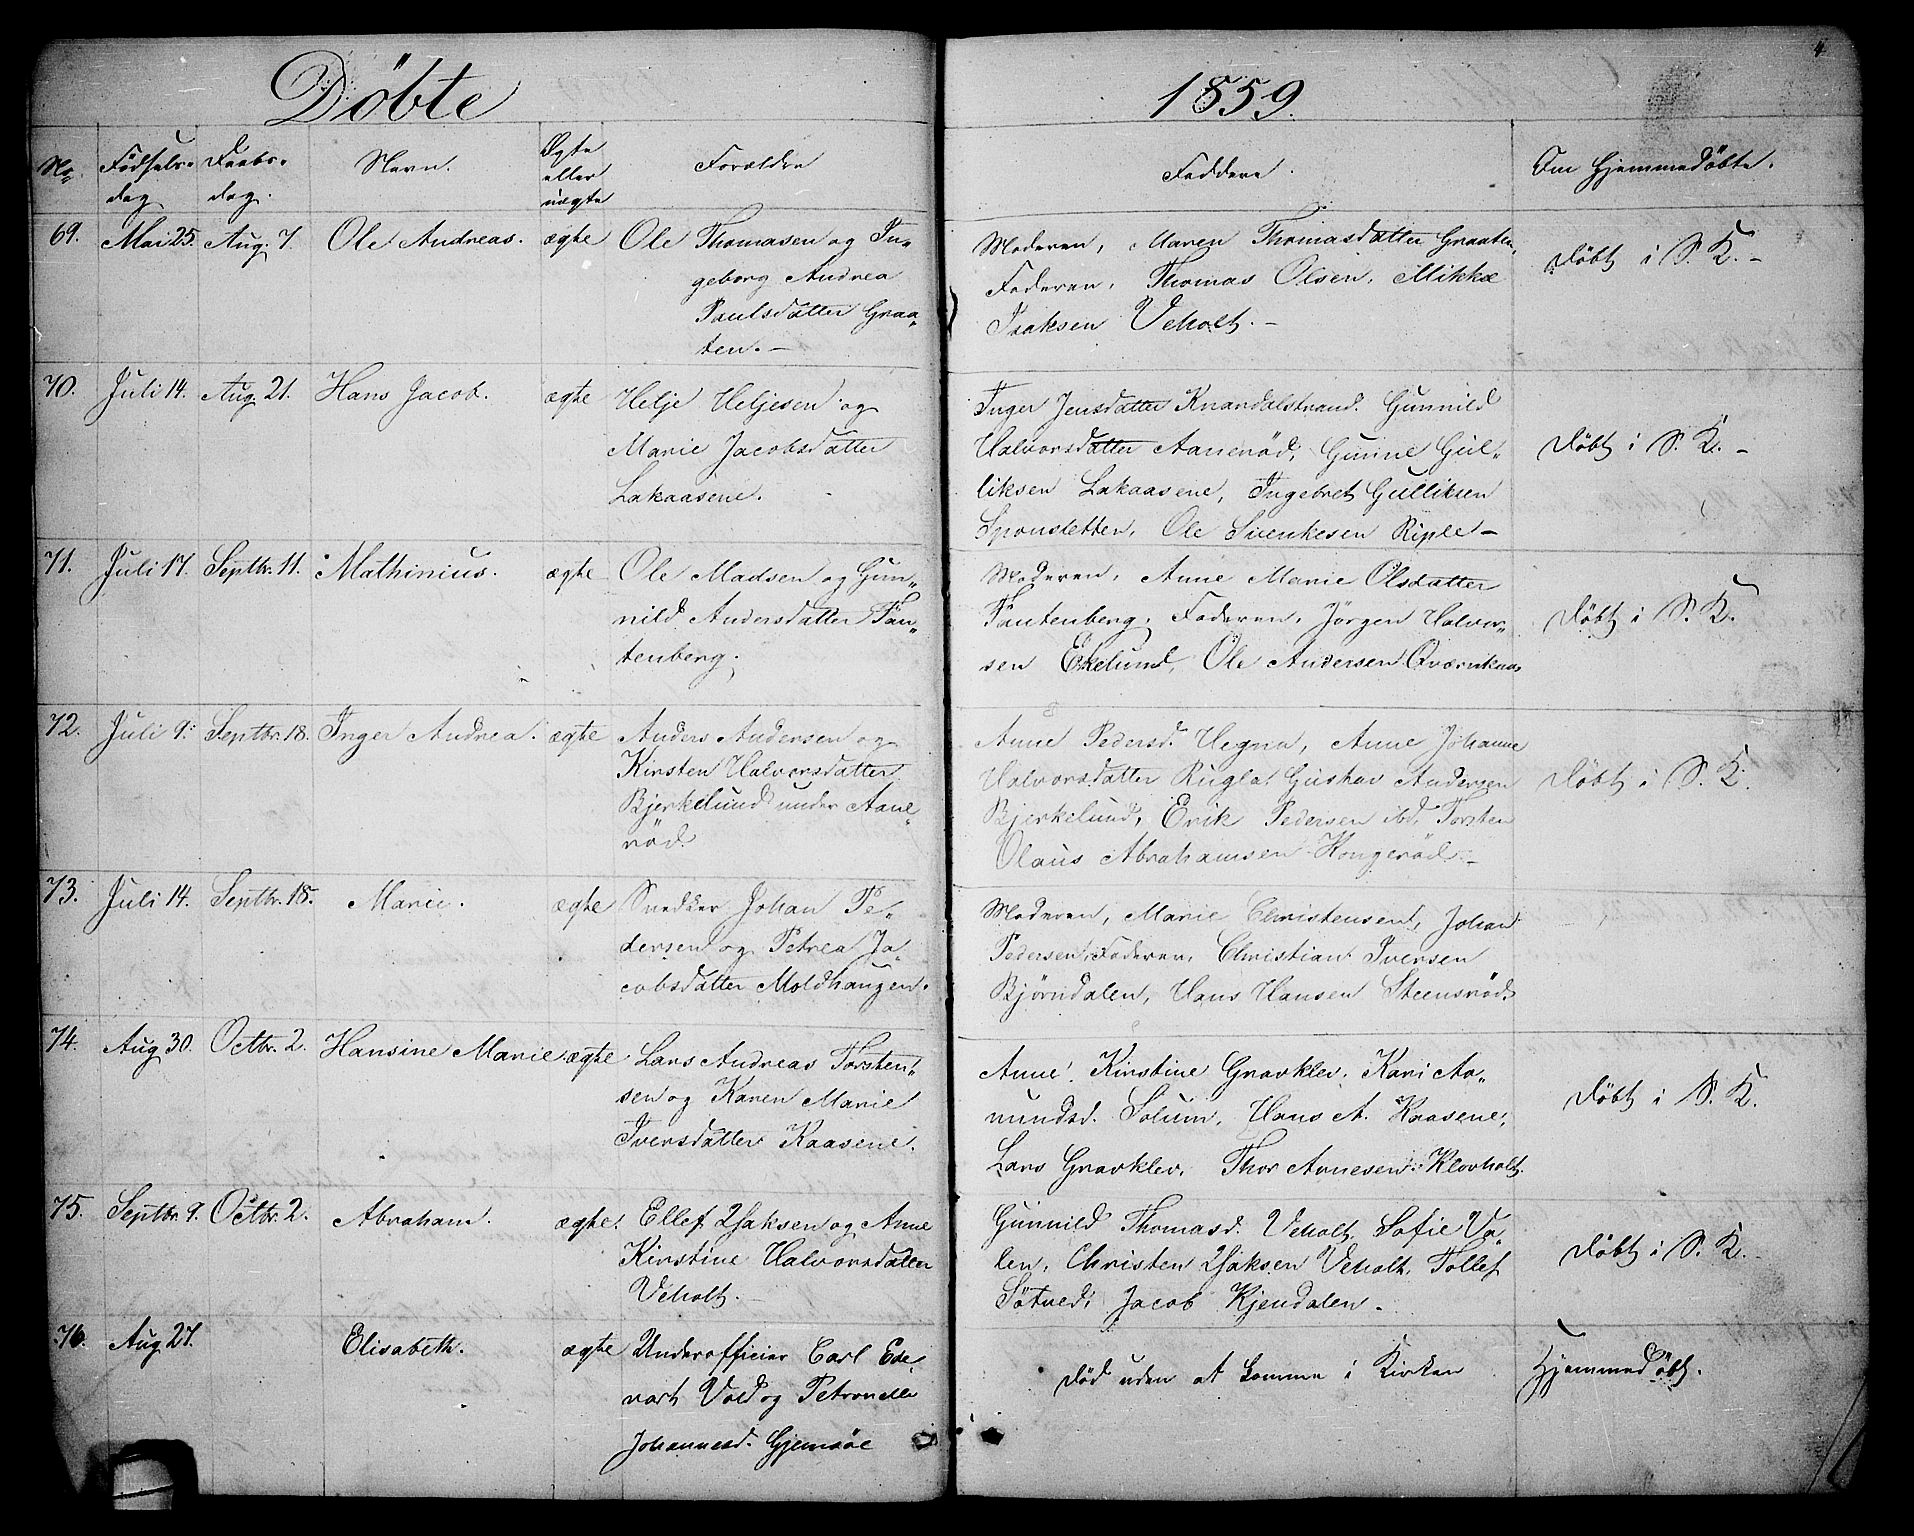 Döbte
1859.
4
No
Födsels-
dag
Daabs-
dag.
Navn.
Ægte
eller
uægte
Forældre
Faddere.
Om Hjemmedöbte.
69. Mai 25. Aug. 7. Ole Andreas. ægte Ole Thomasen og In-
geborg Andrea
Paulsdatter Graa-
ten.-
Moderen, Maren Thomasdatter Graaten,
Faderen, Thomas Olsen, Mikkæ
Isaksen Veholt.-
döbt i S. K.-
70. Juli 14. Aug. 21. Hans Jacob. ægte Helje Heljesen og
Marie Jacobsdatter
Lakaasene.
Inger Jensdatter Knardalstrand. Gunnild
Halvorsdatter Aaneröd, Gunne Gul-
liksen Lakaasene, Ingebret Gulliksen
Sponsletten, Ole Svenkesen Riple-
döbt i S. K.-
71. Juli 17. Septbr. 11. Mathinius. ægte Ole Madsen og Gun-
nild Andersdatter Fan-
tenberg.
Moderen, Anne Marie Olsdatter
Fantenberg, Faderen, Jörgen Halvor-
sen Ekelund, Ole Andersen
döbt i S. K.
72. Juli 9. Septbr. 18. Inger Andrea. ægte Anders Andersen og
Kirsten Halvorsdatter
Bjerkelund under Aane-
röd.
Anne Pedersd. Hegna, Anne Johanne
Halvorsdatter Rugla. Gustav Andersen
Bjerkelund, Erik Pedersen ibd, Torsten
Olaus Abrahamsen Kongeröd.-
döbt i S. K.
73. Juli 14. Septbr. 18. Marie. ægte Snedker Johan Pe-
dersen og Petrea Ja-
cobsdatter Moldhaugen.
Moderen, Marie Christensen, Johan
Pedersen, Faderen, Christian Iversen
Björndalen, Hans Hansen Steensröd.
74. Aug 30. Octbr. 2. Hansine Marie ægte Lars Andreas Torsten-
sen og Karen Marie
Iversdatter Kaasene.
Anne Kirstine Gravklev, Kari Aa-
mundsd. Solum, Hans A. Kaasene,
Lars Gravklev, Thor Arnesen Klovholt
döbt i S. K.
75. Septbr. 9. Octbr. 2. Abraham. ægte. Ellef Isaksen og Anne
Kirstine Halvorsdatter
Veholt.-
Gunnild Thomasd. Veholt, Sofie Va-
len, Christen Isaksen Veholt, Tollef
Sötved, Jacob Kjendalen.
döbt i S. K.-
76. Aug 27. Elisabeth. ægte Underofficier Carl Ed-
vart Vold og Petronelle
Johannesd. Gjemsöe
död uden at komme i Kirken
Hjemmedöbt.